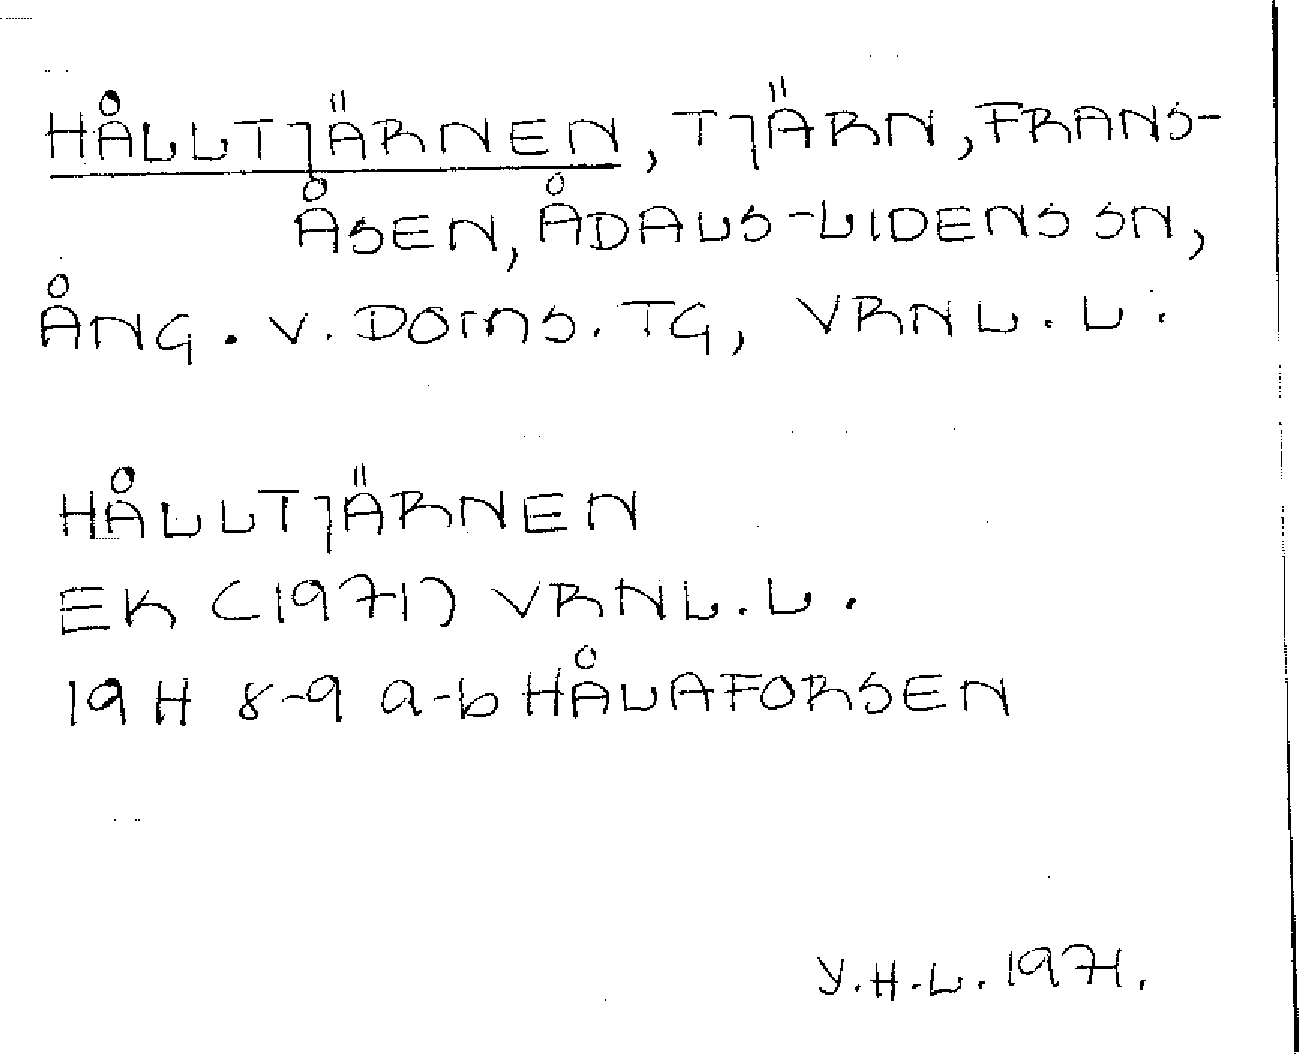 HÅLLTJÄRNEN, TJÄRN, FRANS-
ÅSEN, ÅDALS-LIDENS SN,
ÅNG. V. DOMS. TG, VRNL. L.
HÅLLTJÄRNEN
EK (1971) VRNL. L.
19 H 8-9 a-b HÅLAFORSEN
Y.H.L. 1971.